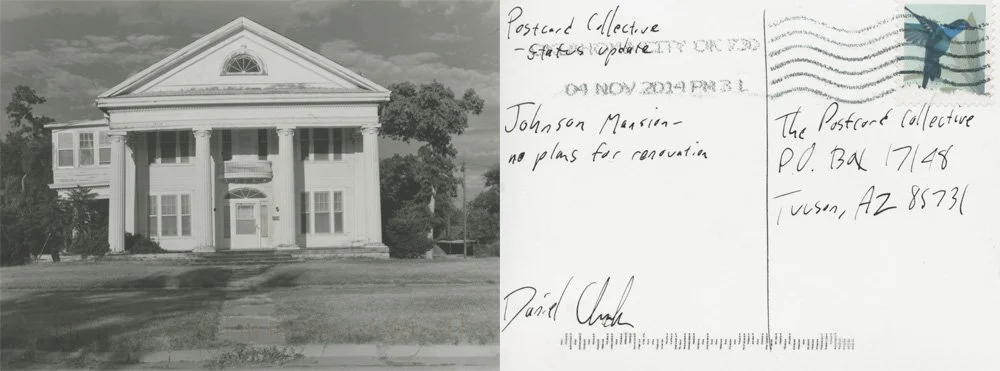 Postcard Collective
- Status update
OKLAHOMA CITY OK 730
04 NOV 2014 PM 3 L
Johnson Mansion-
no plans for renovation
Daniel
The Postcard Collective
P.O. Box 17148
Tucson, AZ 85731